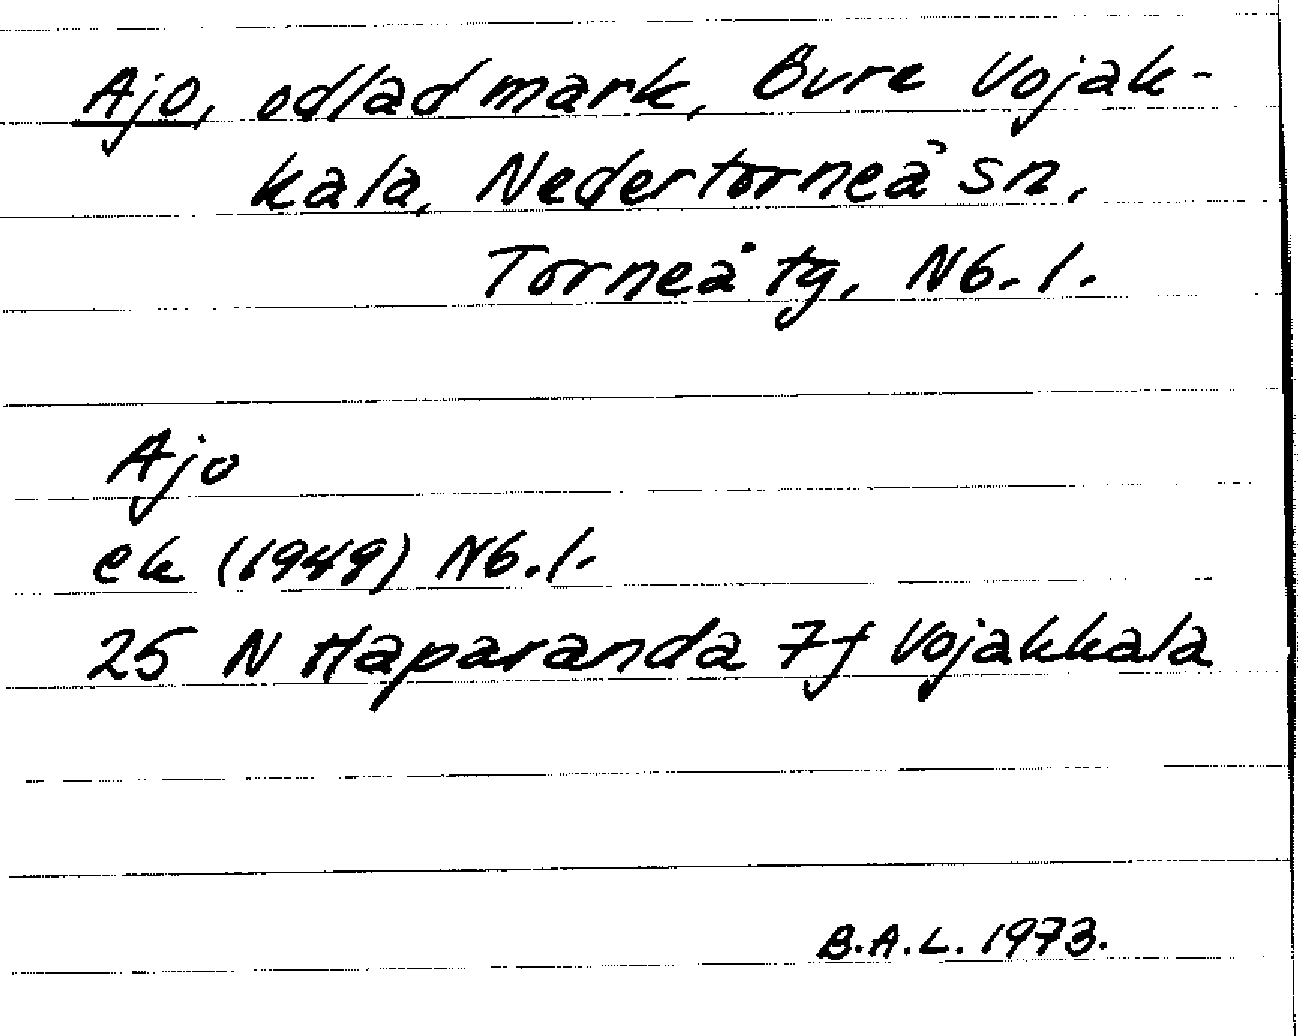 Ajo, odlad mark, Övre Vojak-
kala, Nedertorneå sn,
Torneå tg, Nb. l.
Ajo
ek (1949) Nb. l.
25 N Haparanda 7f Vojakkala
B.A.L. 1973.